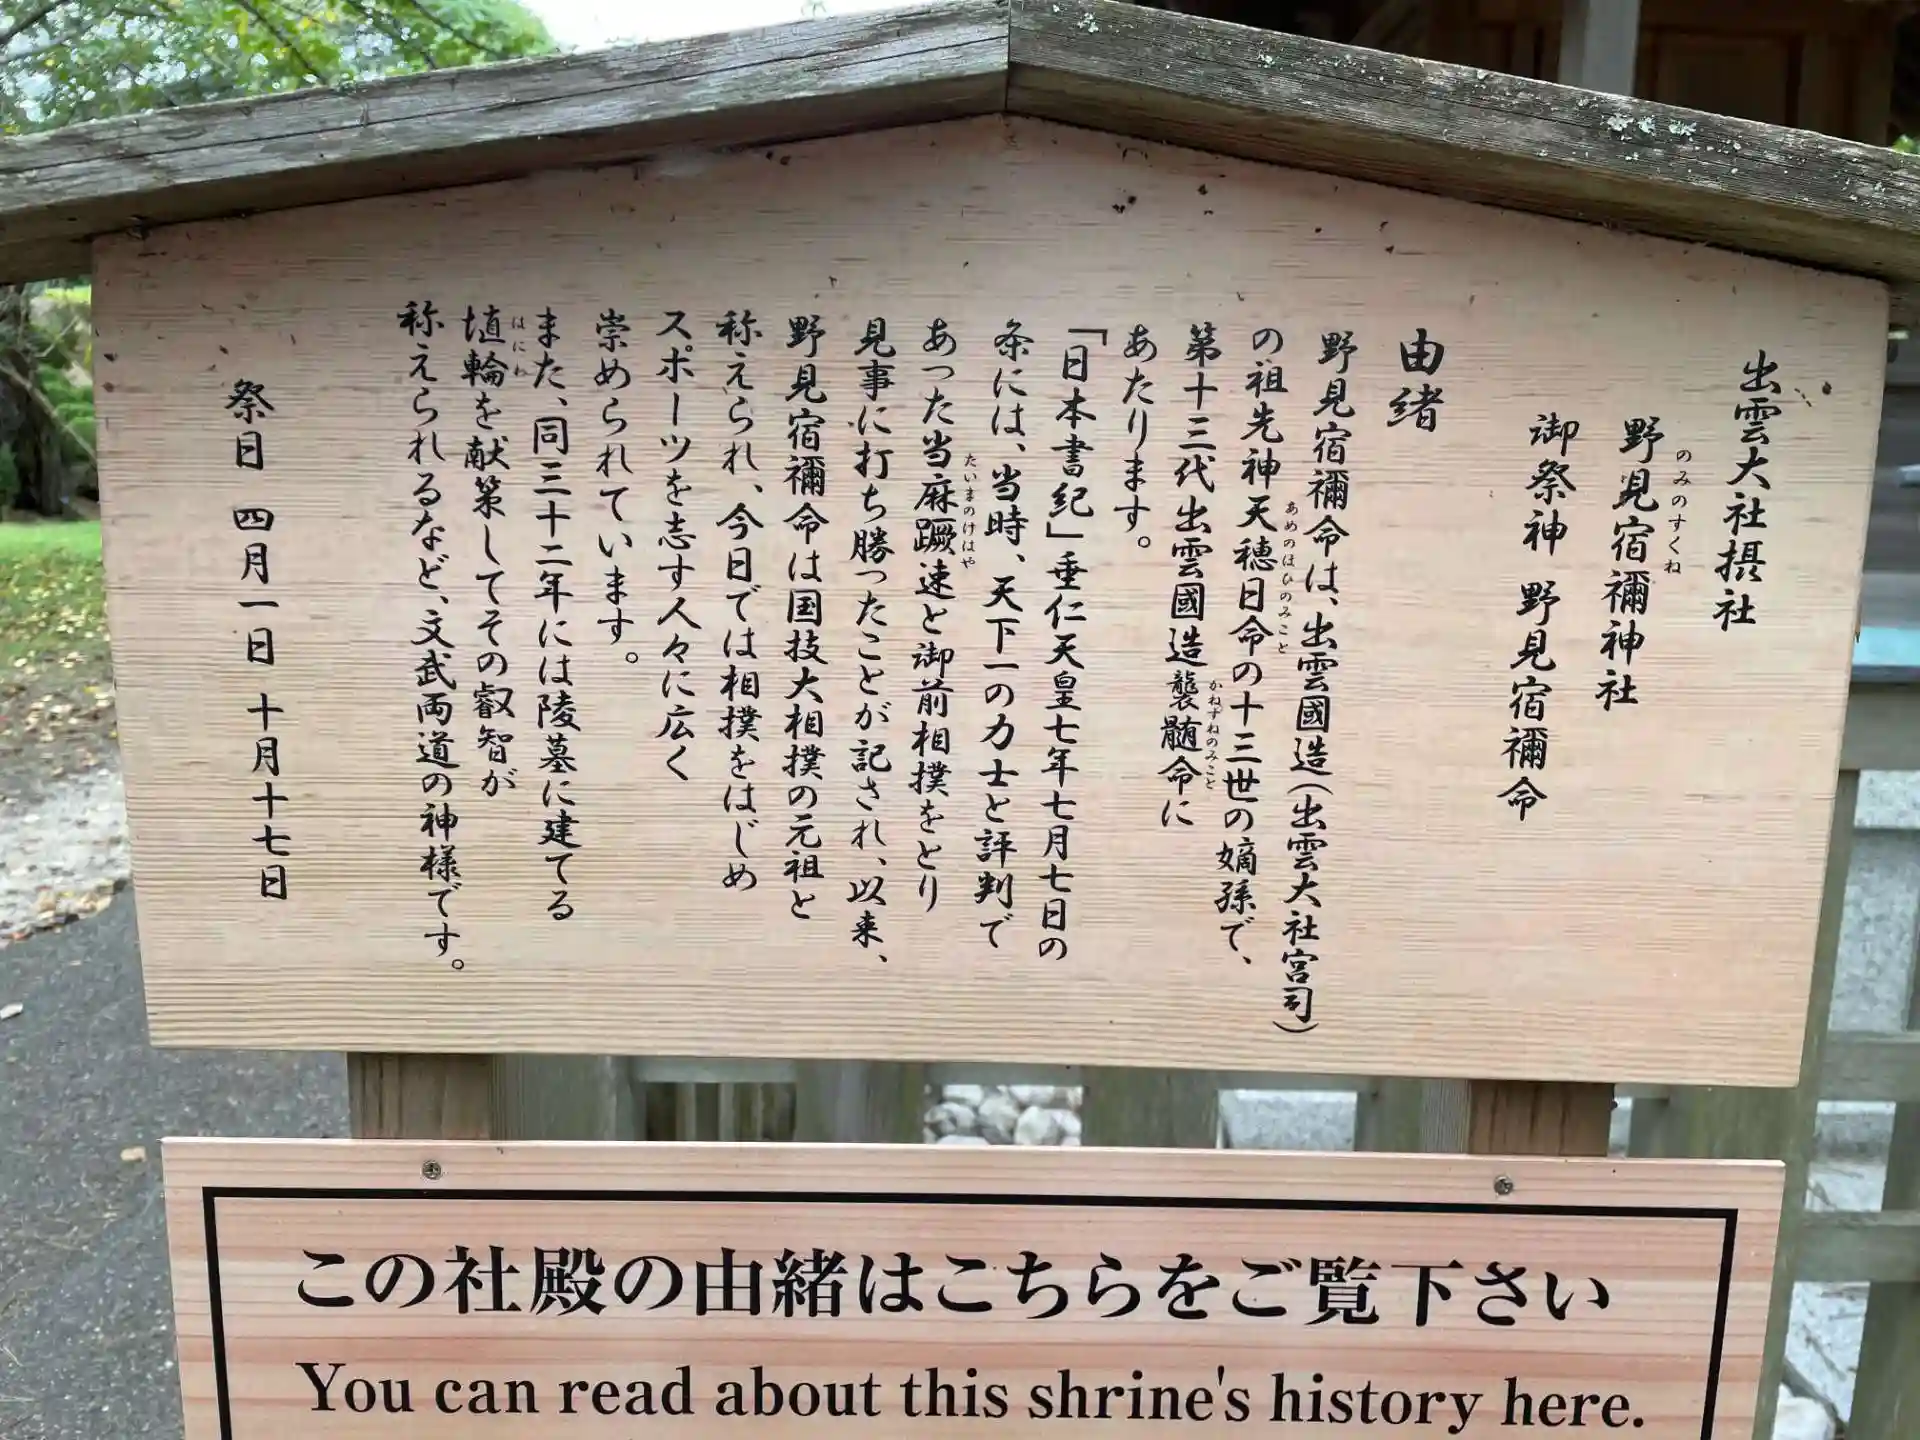 出雲大社摂社
野見宿禰神社
のみのすくね
御祭神 野見宿禰命
由緒
野見宿禰命は、出雲國造（出雲大社宮司）
の祖先神天穂日命の十三世の嫡孫で、
あめのほひのみこと
第十三代出雲國造襲髄命に
かねすねのみこと
あたります。
「日本書紀」垂仁天皇七年七月七日の
条には、当時、天下一の力士と評判で
あった当麻蹶速と御前相撲をとり
たいまのけはや
見事に打ち勝ったことが記され、以来、
野見宿禰命は国技大相撲の元祖と
称えられ、今日では相撲をはじめ
スポーツを志す人々に広く
崇められています。
また、同三十二年には陵墓に建てる
埴輪を献策してその叡智が
はにわ
称えられるなど、文武両道の神様です。
祭日 四月一日 十月十七日
この社殿の由緒はこちらをご覧下さい
You can read about this shrine's history here.